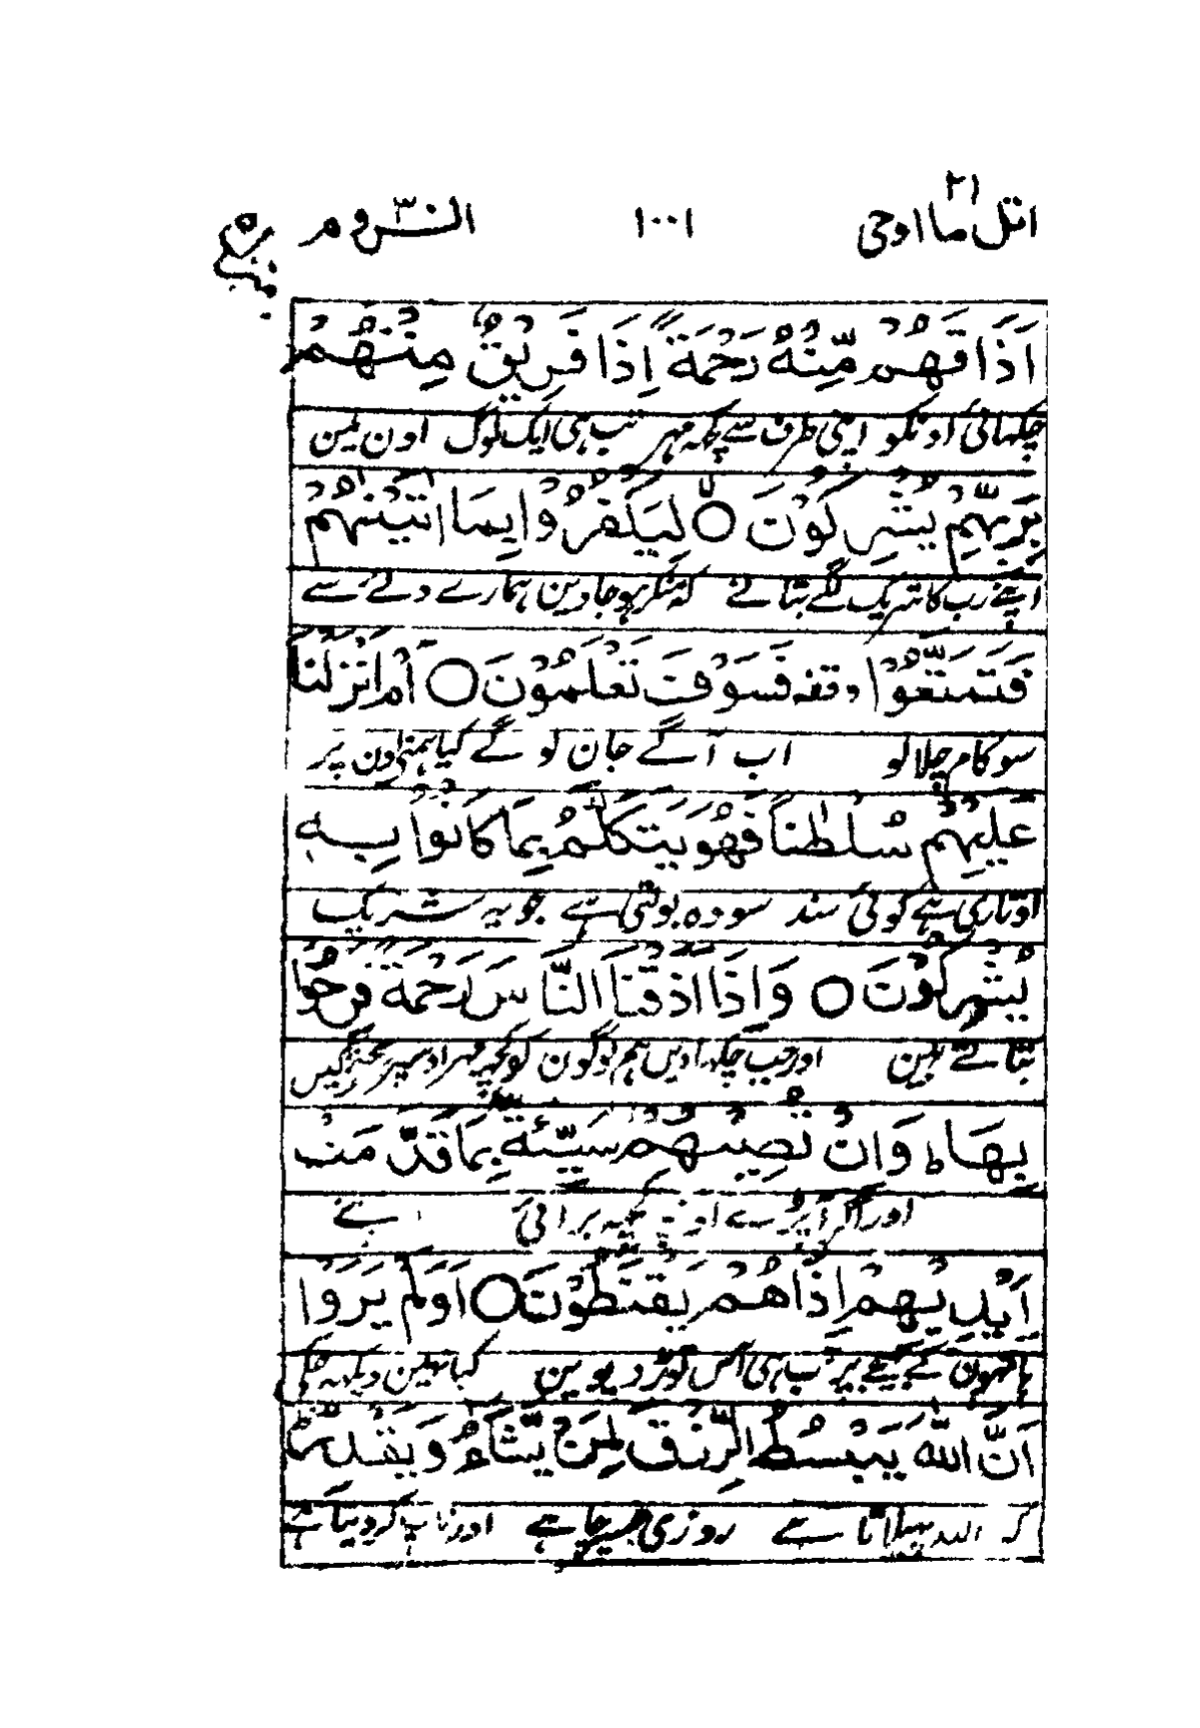 اتل ما اوحی ٢١
١٠٠١
الروم ٣٠
اَذَاقَهُمْ مِّنْهُ رَحْمَةً اِذَا فَرِيْقٌ مِنْهُمْ
چکہائی اونکو اپنی طرف سے کچہ مہر تب ہی ایک لوگ اون مین
بِرَبِّهِمْ يُشْرِكُوْنَ ○ لِيَكْفُرُوْا بِمَا اٰتَيْنٰهُمْ
اپنے رب کا شریک لگے بتانے کہ منکر ہو جاوین ہمارے دئے سے
فَتَمَتَّعُوْا وقفه فَسَوْفَ تَعْلَمُوْنَ ○ اَمْ اَنْزَلْنَا
سو کام چلا لو اب آگے جان لو گے کیا ہمنے اون پر
عَلَيْهِمْ سُلْطٰنًا فَهُوَ يَتَكَلَّمُ بِمَا كَانُوْا بِهٖ
اوتاری ہے کوئی سند سو وہ بولتی ہے جو یہ شریک
يُشْرِكُوْنَ ○ وَاِذَا اَذَقْنَا النَّاسَ رَحْمَةً فَرِحُوْا
بتاتے ہین اور جب چکہاویں ہم لوگون کو کچہ مہر اوسپر
بِهَا ط وَاِنْ تُصِبْهُمْ سَيِّئَةٌ بِمَا قَدَّمَتْ
اور اگر آ پڑے کچہ برائی اپنے
اَيْدِيْهِمْ اِذَا هُمْ يَقْنَطُوْنَ ○ اَوَلَمْ يَرَوْا
ہاتہون کے بہیجے پر تب ہی آس توڑ دیوین کیا نہین دیکہہ چکے
اَنَّ اللّٰهَ يَبْسُطُ الرِّزْقَ لِمَنْ يَّشَآءُ وَيَقْدِرُ
کہ اللہ پہیلاتا ہے روزی جسپر چاہے اور ناپ کر دیتا ہے